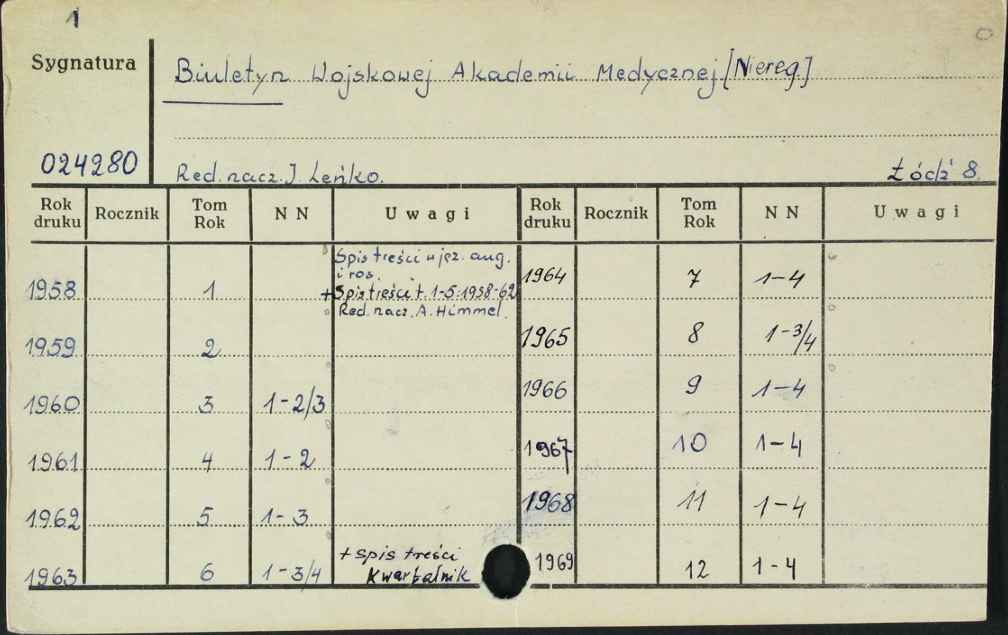 1
Sygnatura
Biuletyn Wojskowej Akademii Medycznej [Niereg.]
024280
Red. nacz. J. Leńko.
Łódź 8.
Rok druku Rocznik Tom Rok NN Uwagi Rok druku Rocznik Tom Rok NN Uwagi
Spis treści w jęz. ang.
i ros.
1958 1 + Spis treści t. 1-5:1958-62 1964 7 1-4
Red. nacz. A. Himmel.
1959 2 1965 8 1-3/4
1960 3 1-2/3 1966 9 1-4
1961 4 1-2 1967 10 1-4
1962 5 1-3 1968 11 1-4
+ spis treści
1963 6 1-3/4 Kwartalnik 1969 12 1-4